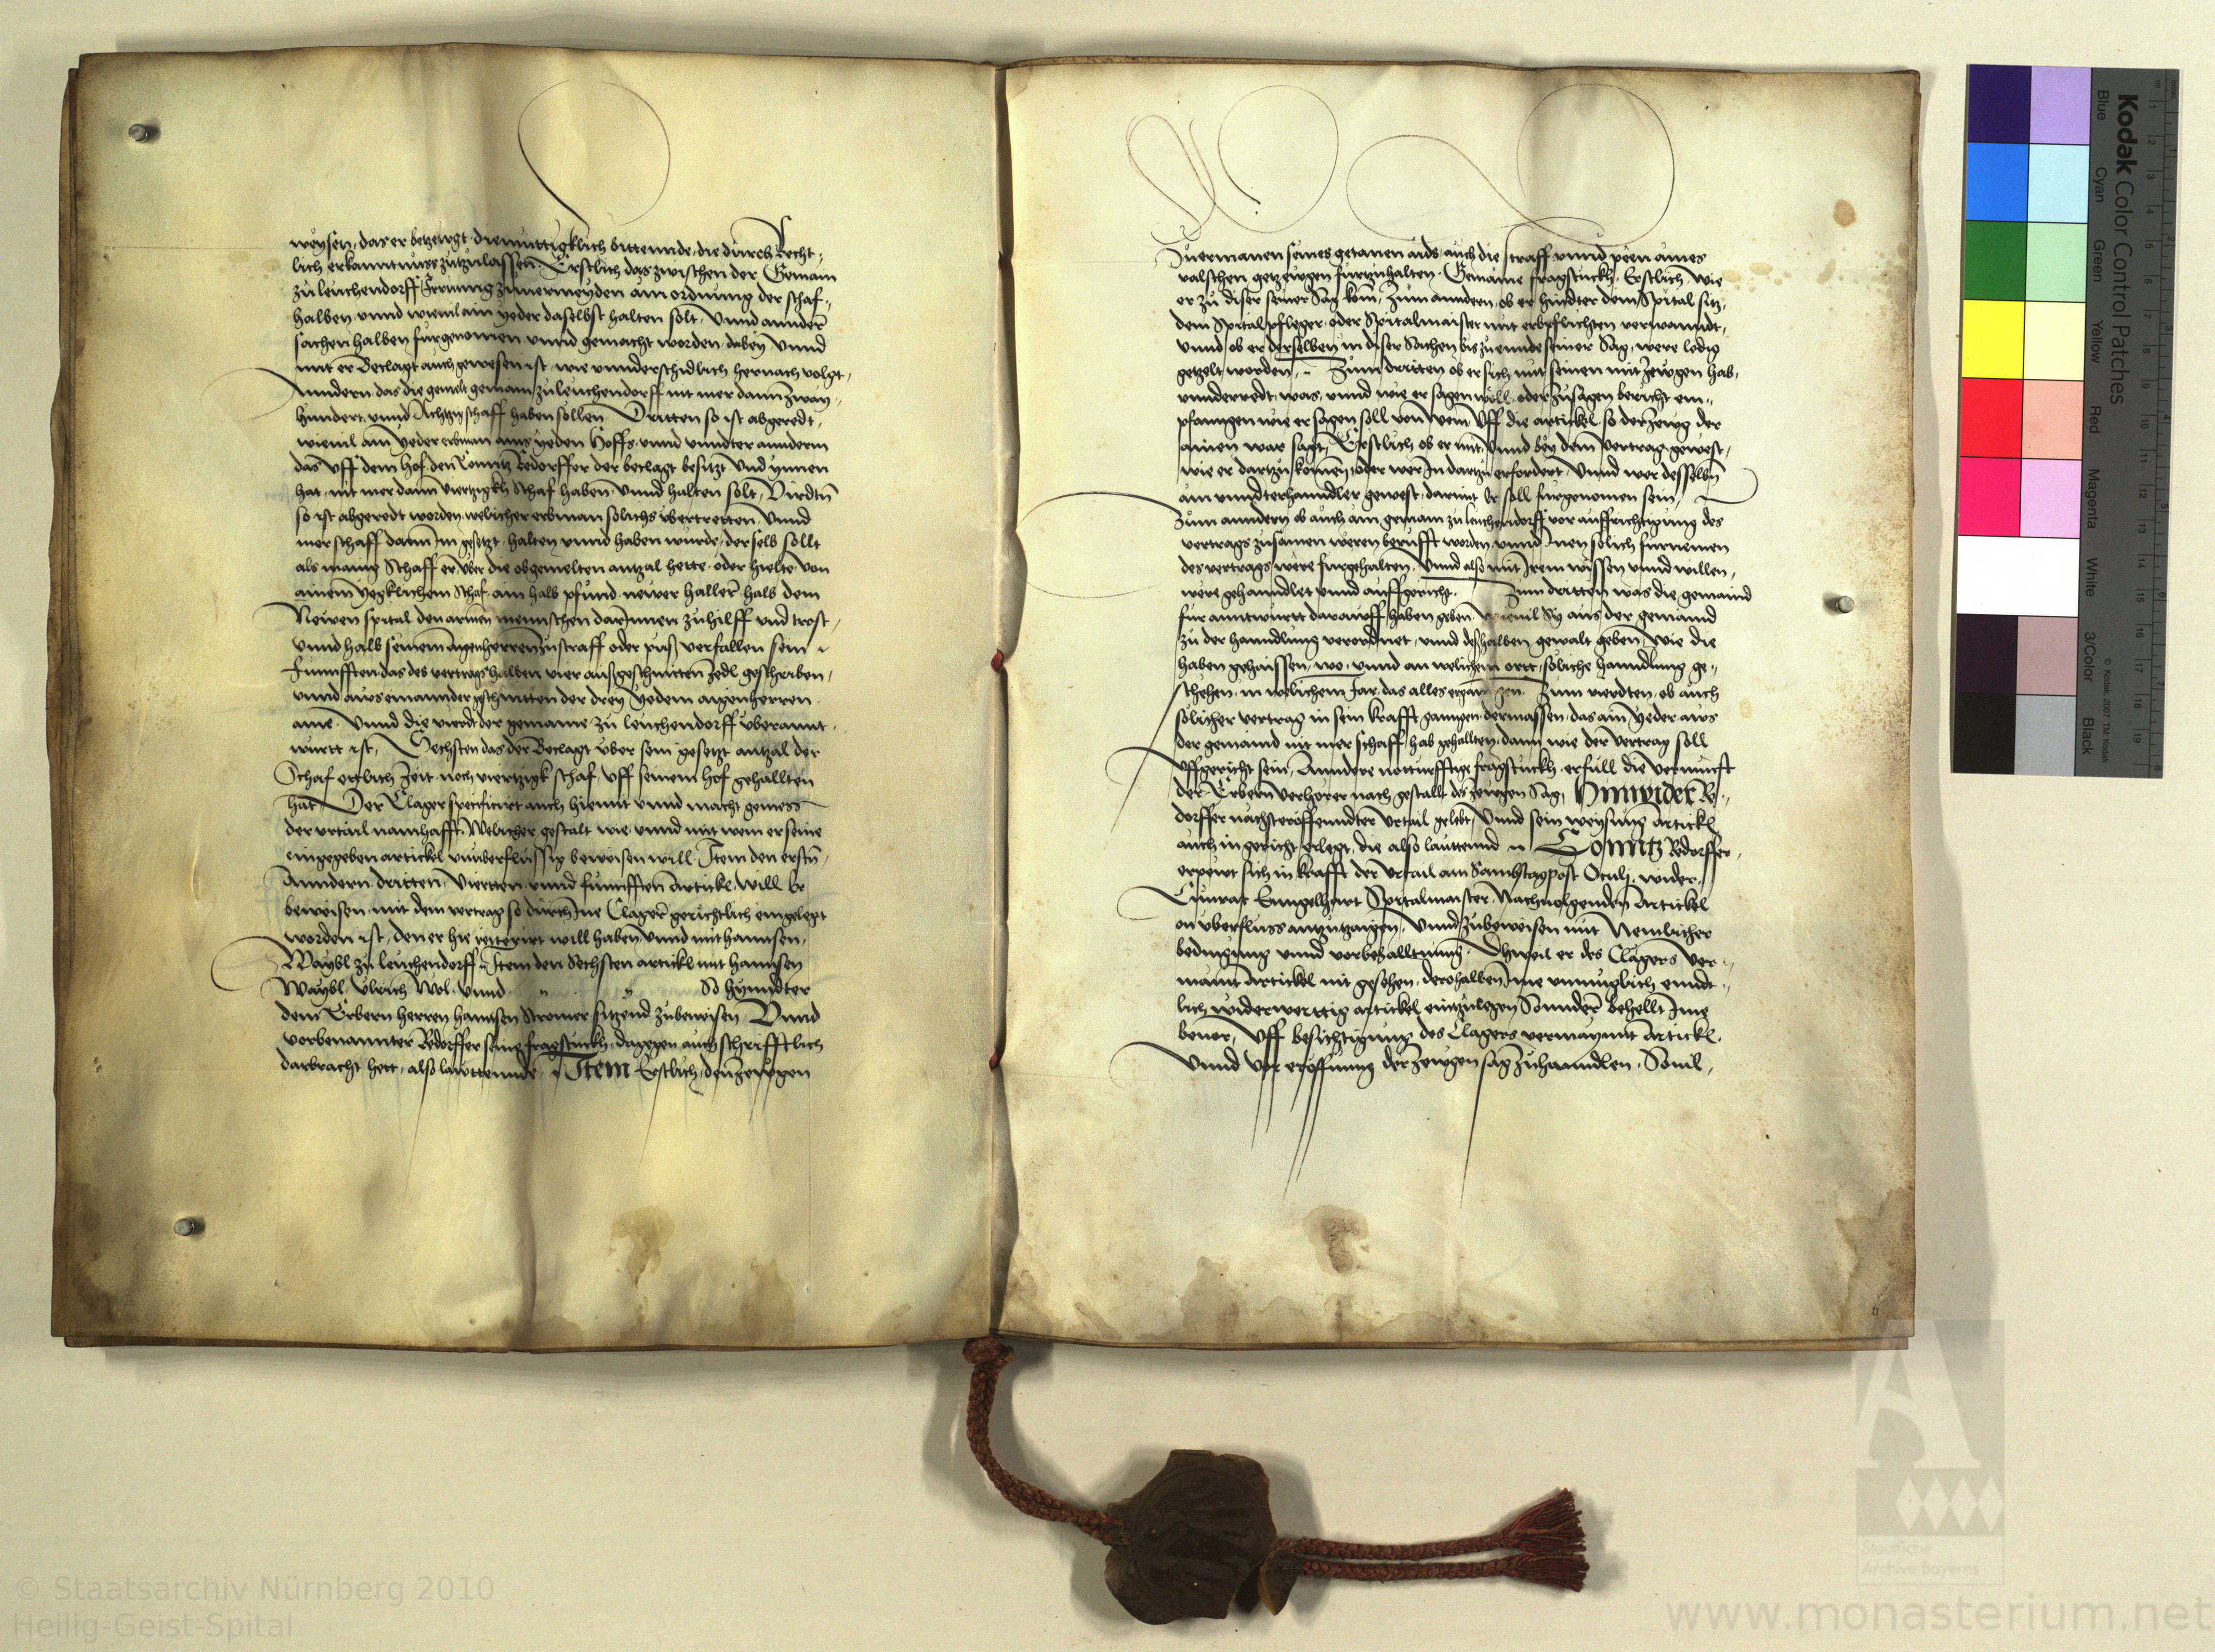 weysen, das er betzeugt, diemuttigklich bittennde, die durch Recht„
lich erkanntnuss zutzulassen. Erstlich das zwischen der Gemain
zu leuchendorff Irrung zuuermeyden ain ordnung der schaf„
halben vnnd wieuil ain yeder daselbst halten solt, vnnd annder
sachen halben furgenomen vnnd gemacht worden, dabey vnnd
mit er Beclagt auch gewesen ist, wie vnnderschidlich hernach volgt,
Anndern das die gemelt gemain zu leuchendorff nit mer dann zway„
hundert vnnd Achtzig schaff haben sollen. Dritten so ist abgeredt,
wieuil ain yeder erbman auss yeden Hoffs, vnnd vnndter annderm
das vff dem hof den Conntz Redorffer der beclagt besitzt vnnd ynnen
hat, nit mer dann viertzigkh Schaf haben vnnd halten solt, Virdtn
so ist abgeredt worden, welicher erbman solichs vbertretten, vnnd
mer schaff dann Im gesetzt, halten vnnd haben wurde, derselb sollt
als manig Schaff er vber die obgemelten antzal hette, oder hielte, von
ainem yegklichem Schaf, ain halb pfund newer haller, halb dem
Newen spital den armen mennschen darInnen zu hilff vnd trost,
vnnd halb seinem aigenherren zu straff oder puss verfallen sein
Funnfften das des vertrags halben vier aussgeschnitten Zedl geschriben,
vnnd auss einannder geschnitten der drey yedem aigenherren
aine, vnnd die vierdt der gemaine zu leuchendorff vberannt,
wurtt ist, Sechsten das der Beclagt vber sein gesetzt antzal der
Schaf ettlich Zeit, noch viertzigk schaf, vff seinem hof gehallten
hat. Der Clager specificirt auch hiemit vnnd macht gemess
der vrtail namhafft. Welicher gestalt wie, vnnd mit wem er seine
eingegeben artickel vnuberflussig beweisen will. Item den erstn,
Anndern, dritten, Viertten vnnd funnfften Artickl, will Er
beweisen, mit dem vertrag so durch Ine Clager gerichtlich eingelegt
worden ist, den er hie reiterirt will haben vnnd mit hannsen,
Waybl zu leuchendorff. Item den Sechsten artickl mit hannsen
Waybl, Vlrich Wol, vnnd „ „ So hynndter
dem Erbern herren hannsen Stromer sitzend zubeweisen. Vnnd
vorbenannter Redorffer seine fragstuckh, dagegen auch schrifftlich
darbracht hett, also lauttennde. Item Erstlich, den Zewgen
Zuermanen seines getanen aids, auch die straff vnnd peen aines
valschen getzewgen furzuhalten. Gemaine fragstuckh. Erstlich, wie
er zu diser seiner Sag kom, Zum anndern, ob er hindter dem Spital sitz,
dem Spitalpfleger, oder Spitalmaister mit erbpflichten verwanndt,
vnnd ob er derselben in diser Sachen bis zu ennde seiner Sag, were ledig
getzelt worden. Zum dritten ob er sich mit seinen mit Zewgen hab,
vnnderredt, was, vnnd wie er sagen wöll, oder zusagen bericht em„
pfanngen wie er sagen soll von wem. Vff die artickel, so der Zewg der
ainen war sagt, Erstlich ob er mit vnnd bey dem vertrag gewest,
wie er dartzu komen, oder wer In dartzu erfordert, vnnd wer desselbn
ain vnndterhanndler gewest, darmit Er soll furgenomen sein,
Zum anndern ob auch ain gemain zu leuchendorff vor auffrichtigung des
vertrags zusamen weren berufft worden, vnnd Inen solich furnemen
des vertrags were furgehalten. Vnnd also mit Irem wissen vnnd willen,
were gehanndlet vnnd auffgericht. Zum dritten was die gemaind
fur anntwurtt darauff haben geben, wieuil Sy auss der gemaind
zu der hanndlung verordnet, vnnd deshalben gewalt geben, wie die
haben gehaissen, wo, vnnd an welichem ortt, soliche hanndlung ge„
schehen, in welichem Jar, das alles erganntzen. Zum vierdten, ob auch
solicher vertrag in sein krafft ganngen dermassen, das ain yeder auss
der gemaind nit mer schaff hab gehallten, dann wie der vertrag soll
vffgericht sein, Anndere notturfftige fragstuckh, erfull die vernunft
der Erbern verhörer nach gestallt des zewgen Sag, Hinwider Re„
dorffer nachst eröffenndter vrtail gelebt, vnnd sein weysung artickl
auch in gericht erlegt, die also lauttennd. Conntz Redorffer,
erpewt sich in krafft der vrtail am Sambstag post Oculj, wider,
Cunrat Enngelhart Spitalmaister, Nachuolgenden Artickel
on vberfluss antzutzaigen, vnnd zubeweisen mit Nemlicher
bedingung vnnd vorbehalltnung. Dhweil er des Clagers ver„
maint Artickel nit gesehen, derohalben Ime vnmuglich ennd„
lich widerwerttig artickel eintzulegen Sonnder behellt Ime
beuor, Vff besichtigung des Clagers vermaynnt Artickl.
Vnnd vor eröffnung der zewgen sag zuhanndlen. Souil,
Kodak Color Control Patches
Blue Cyan Green Yellow Red Magenta White 3/Color Black
© Kodak, 2007 TM: Kodak
© Staatsarchiv Nürnberg 2010
Heilig-Geist-Spital
Archive Bayerns
www.monasterium.net